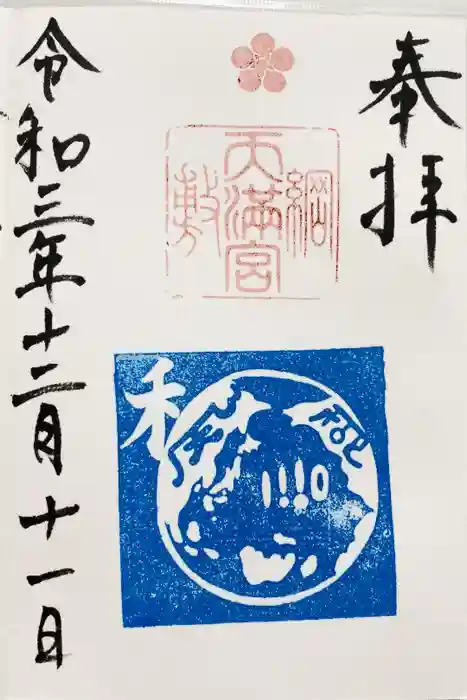 奉拝
綱敷天満宮
令和三年十二月十一日